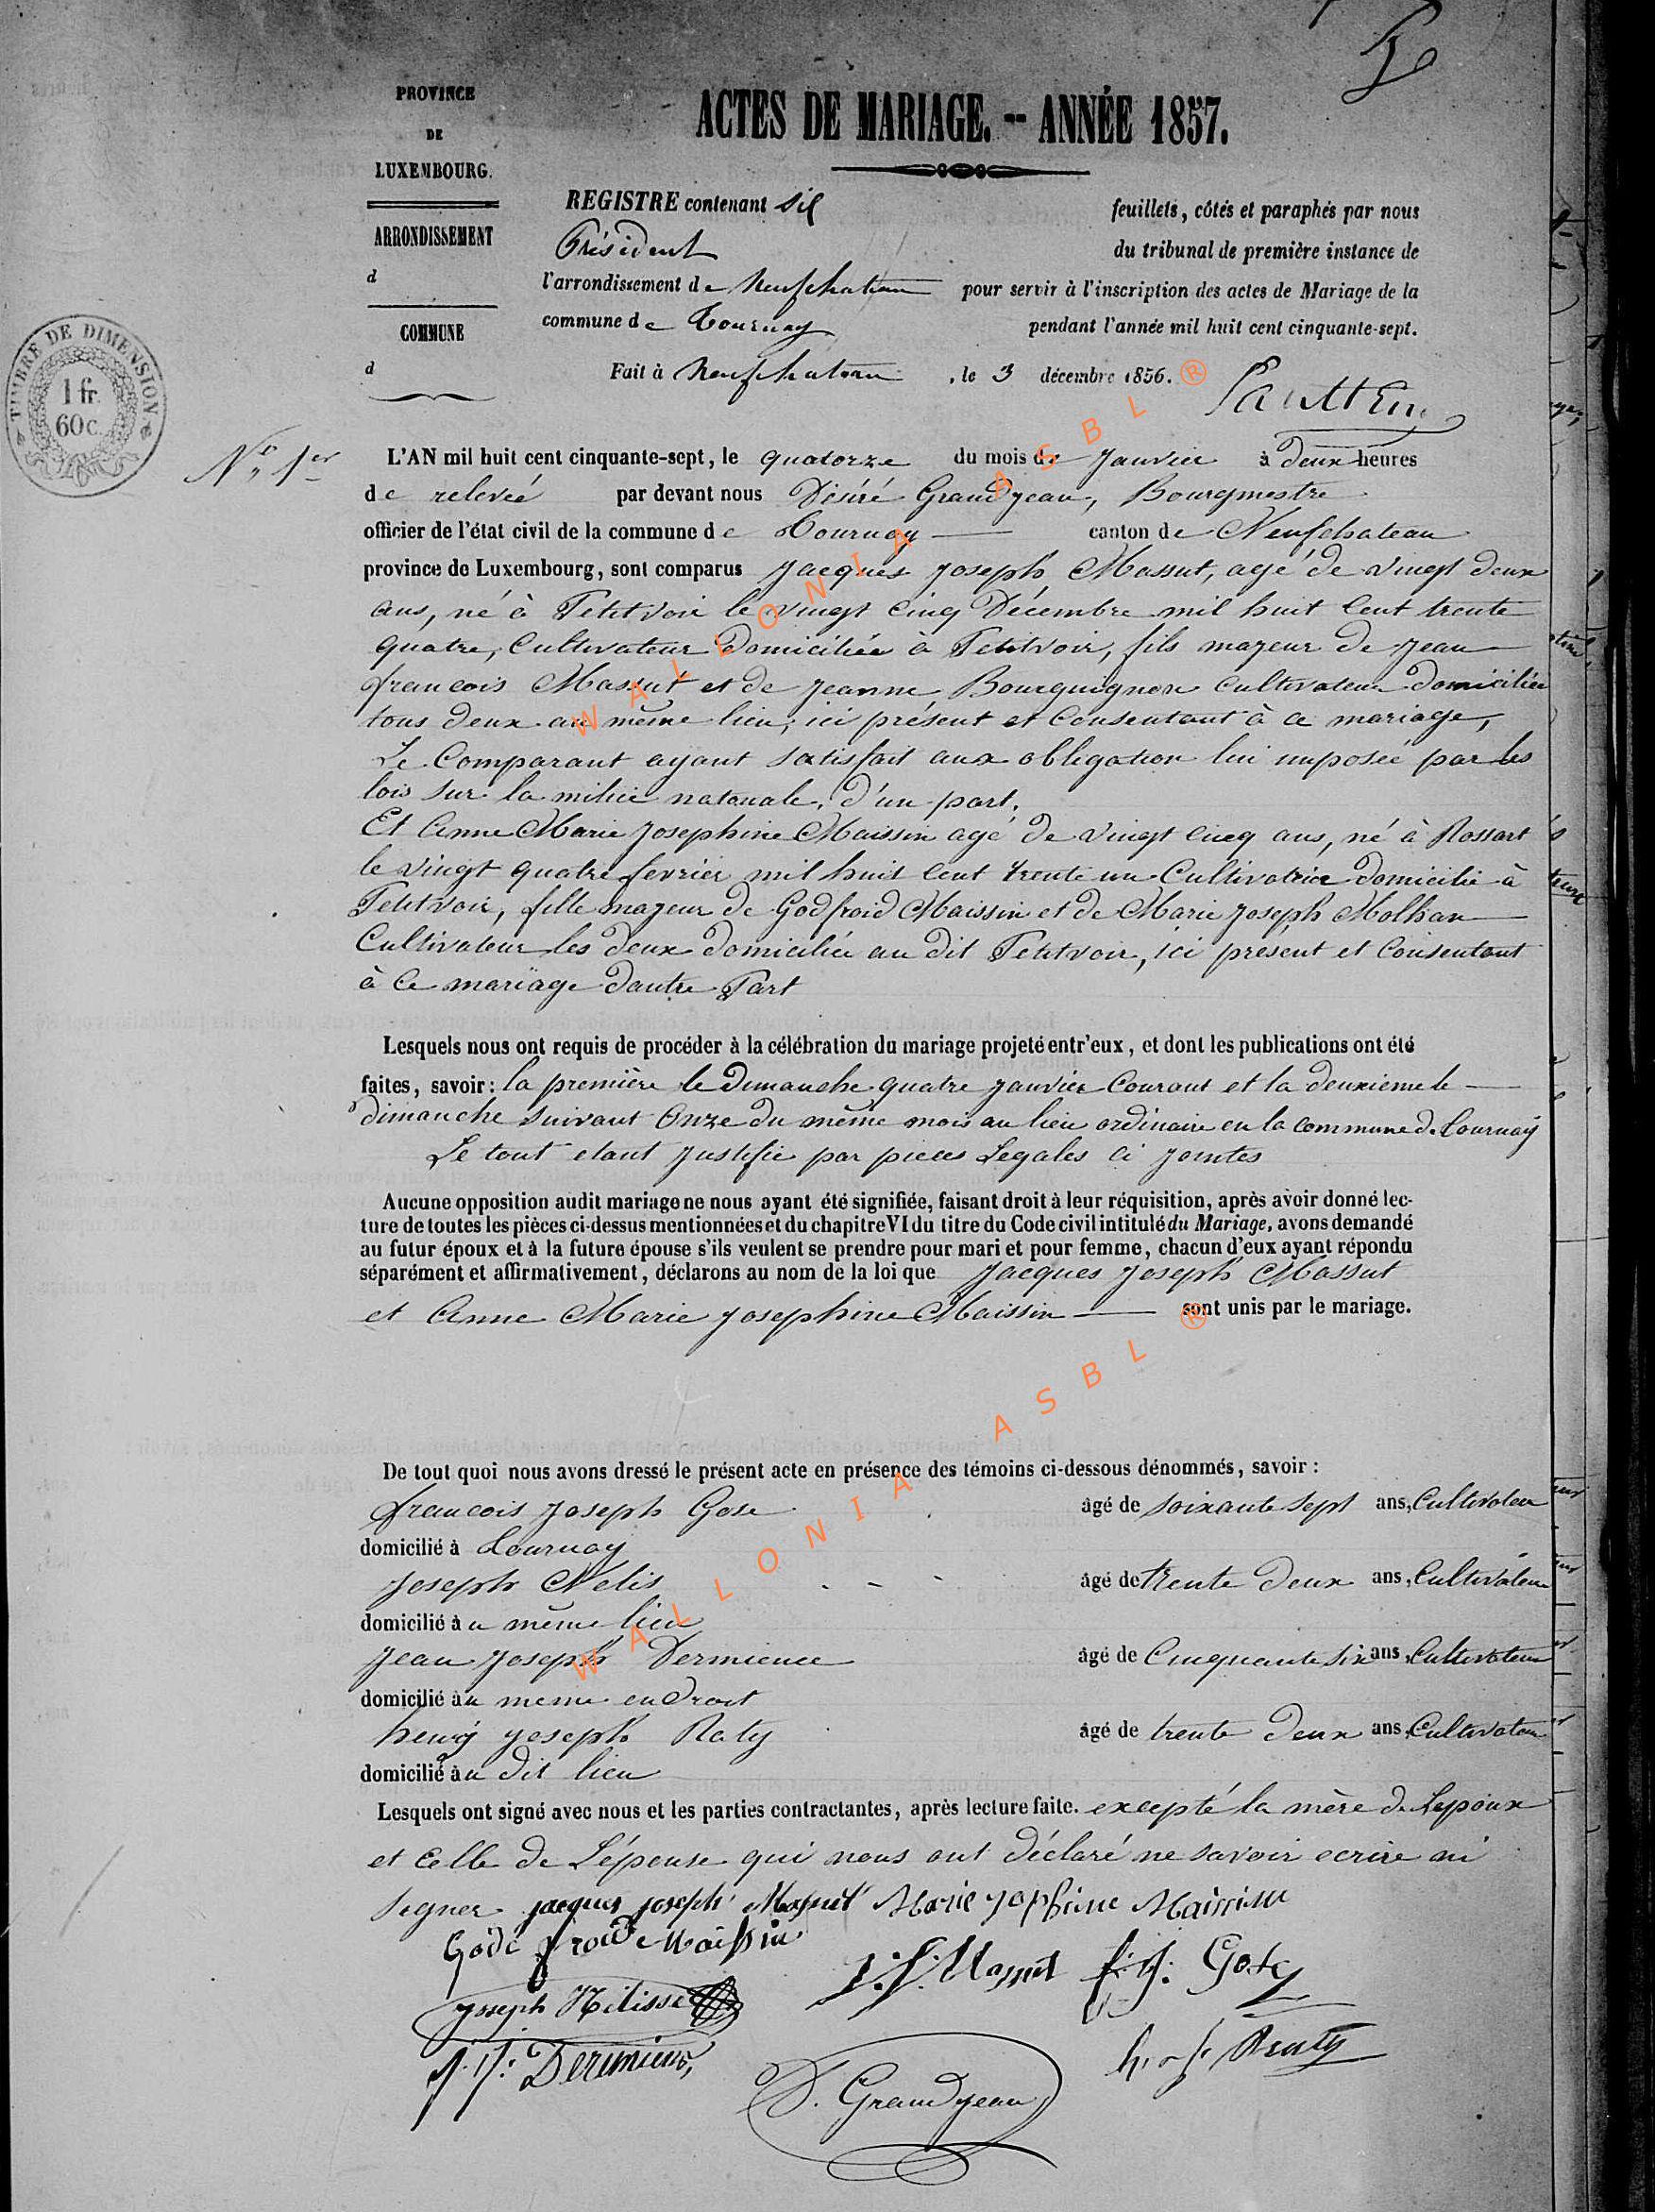 PROVINCE
DE
LUXEMBOURG.
ARRONDISSEMENT
d
COMMUNE
d
TIMBRE DE DIMENSION
1 fr.
60 c.
ACTES DE MARIAGE. -- ANNÉE 1857.
REGISTRE contenant six feuillets, côtés et paraphés par nous
Président du tribunal de première instance de
l'arrondissement de Neufchateau pour servir à l'inscription des actes de Mariage de la
commune de Tournay pendant l'année mil huit cent cinquante-sept.
Fait à Neufchateau, le 3 décembre 1856.
N° 1er
L'AN mil huit cent cinquante-sept, le quatorze du mois de Janvier à deux heures
de relevée par devant nous Désiré Grandjean, Bourgmestre
officier de l'état civil de la commune de Tournay canton de Neufchateau
province de Luxembourg, sont comparus Jacques Joseph Massut, agé de vingt deux
ans, né à Petitvoir le vingt cinq Décembre mil huit cent trente
quatre, Cultivateur Domiciliée à Petitvoir, fils majeur de Jean
francois Massut et de Jeanne Bourguignon Cultivateur Domiciliée
tous deux au même lieu, ici présent et Consentant à ce mariage,
Le Comparant ayant satisfait aux obligation lui imposée par les
lois sur la milice natonale, d'un part.
Et Anne Marie Josephine Maissin agé de vingt cinq ans, né à Rossart
le vingt quatre fevrier mil huit cent trente un Cultivatrice Domicilié à
Petitvoir, fille majeur de Godfroid Maissin et de Marie Joseph Molhan
Cultivateur les deux domiciliée au dit Petitvoir, ici présent et Consentant
à Ce mariage Dautre Part
Lesquels nous ont requis de procéder à la célébration du mariage projeté entr'eux, et dont les publications ont été
faites, savoir : la première le Dimanche quatre janvier Courant et la deuxieme le
dimanche suivant Onze du même mois au lieu ordinaire en la commune de Tournay
Le tout etant Justifié par pieces Legales ci jointes
Aucune opposition audit mariage ne nous ayant été signifiée, faisant droit à leur réquisition, après avoir donné lec-
ture de toutes les pièces ci-dessus mentionnées et du chapitre VI du titre du Code civil intitulé du Mariage, avons demandé
au futur époux et à la future épouse s'ils veulent se prendre pour mari et pour femme, chacun d'eux ayant répondu
séparément et affirmativement, déclarons au nom de la loi que Jacques Joseph Massut
et Anne Marie Josephine Maissin sont unis par le mariage.
De tout quoi nous avons dressé le présent acte en présence des témoins ci-dessous dénommés, savoir :
francois Joseph Gose âgé de soixante sept ans, Cultivateur
domicilié à Tournay
Joseph Nelis âgé de trente Deux ans, Cultivateur
domicilié au même lieu
Jean Joseph Dermience âgé de Cinquante six ans, Cultivateur
domicilié au meme endroit
henry joseph Raty âgé de trente Deux ans, Cultivateur
domicilié au dit lieu
Lesquels ont signé avec nous et les parties contractantes, après lecture faite. excepté la mère de Lepoux
et Celle de L'épouse qui nous ont déclaré ne savoir ecrire ni
signer jacques joseph Massut Marie josphine Maissin
Gode froid Maissin
J. f. Massut f. J. Gose
Joseph Nélisse
J. J. Dermience h. J. Raty
D. Grandjean
WALLONIA ASBL ®
WALLONIA ASBL ®